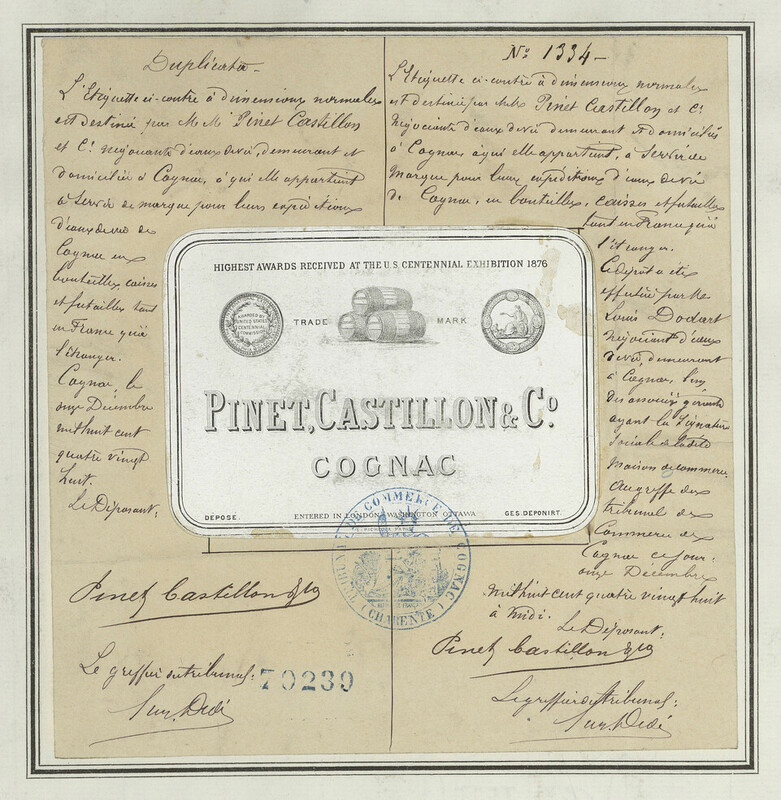 Duplicata
L'Etiquette ci-contre à dimensions normales
est destinée par M M Pinet Castillon
et Cⁱᵉ négociants d'eaux de vie, demeurant et
domiciliés à Cognac, à qui elle appartient
à servir de marque pour leurs expéditions
d'eaux de vie de
Cognac en
bouteilles caisses
et futailles tant
en France qu'à
l'étranger.
Cognac, le
onze Décembre
mil huit cent
quatre vingt
huit.
Le Déposant:
Pinet Castillon & Co
Le greffier du tribunal:
70239
Nº 1334
L'Etiquette ci-contre à dimensions normales
est destinée par MM Pinet Castillon et Cⁱᵉ
Négociants d'eaux de vie demeurant et domiciliés
à Cognac, à qui elle appartient, à servir de
marque pour leurs expéditions d'eaux de vie
de Cognac, en bouteilles, caisses et futailles
tant en France qu'à
l'étranger.
Ce dépôt a été
effectué par Mr
Louis Dodart
négociant d'eaux
de vie, demeurant
à Cognac, l'un
des associés gérants
ayant la signature
sociale de ladite
maison de commerce.
Au greffe du
tribunal de
Commerce de
Cognac ce jour
onze Décembre
mil huit cent quatre vingt huit
à midi.
Le Déposant:
Pinet Castillon & Co
Le greffier du tribunal:
HIGHEST AWARDS RECEIVED AT THE U.S. CENTENNIAL EXHIBITION 1876
AWARDED BY
UNITED STATES
CENTENNIAL
COMMISSION
TRADE MARK
PINET, CASTILLON & Cº
COGNAC
DEPOSE. ENTERED IN LONDON, WASHINGTON OTTAWA GES. DEPONIRT.
TRIBUNAL DE COMMERCE DE COGNAC
(CHARENTE)